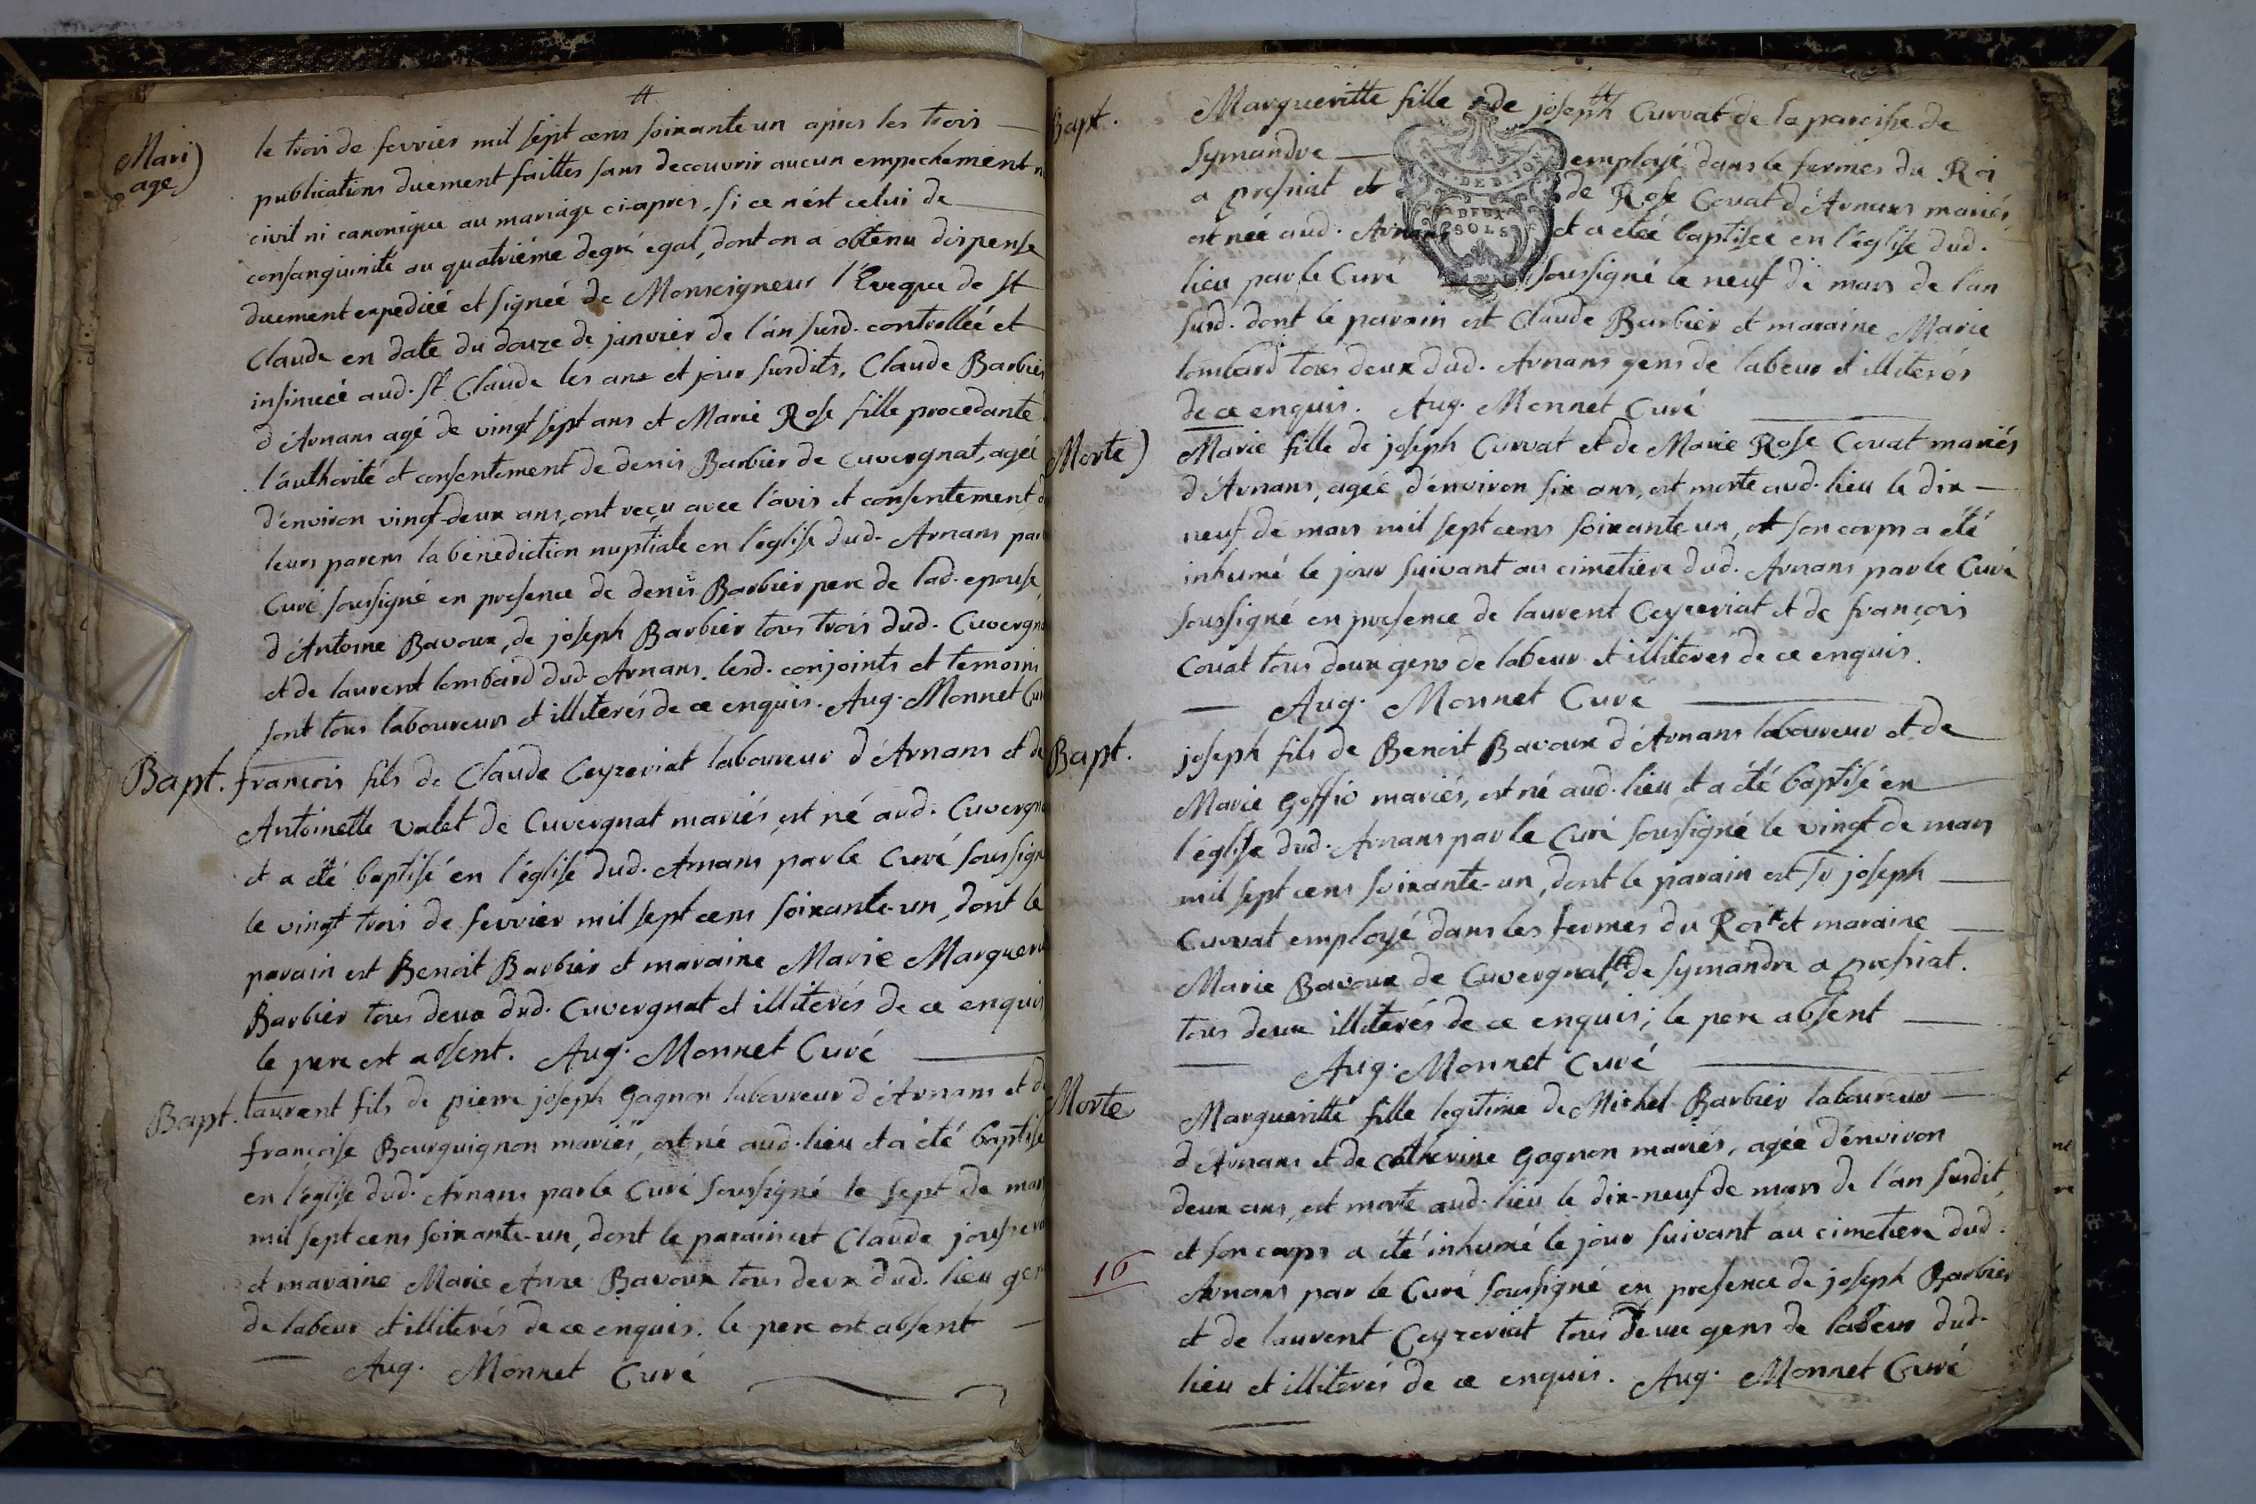 Mari
age
le trois de fevrier mil sept cens soixante un apres les trois
publications duement faittes sans decouvrir aucun empechement
civil ni canonique au mariage ci-apres, si ce n'ést celui de
consanguinité au quatriéme degré egal, dont on a obtenu dispense
duement expediéé et signéé de Monseigneur l'Eveque de St
Claude en date du douze de janvier de l'án susd. controlléé et
insinuéé aud. St Claude les ans et jour susdits, Claude Barbier
d'Arnans agé de vingt sept ans et Marie Rose fille procedante
l'authorité et consentement de denis Barbier de Cuvergnat, agéé
d'énviron vingt-deux ans, ont reçu avec l'avis et consentement
leurs parens la bénediction nuptiale en l'église dud. Arnans par
Curé soussigné en presence de denis Barbier pere de lad. epouse,
d'Antoine Bavoux, de joseph Barbier tous trois dud. Cuvergna
et de laurent lombard dud. Arnans. lesd. conjoints et temoins
sont tous laboureurs et illiterés de ce enquis. Aug. Monnet Cur
Bapt. françois fils de Claude Ceyzeriat laboureur d'Arnans et de
Antoinette valet de Cuvergnat mariés est né aud. Cuvergna
et a été baptisé en l'église dud. Arnans par le Curé soussigné
le vingt trois de fevrier mil sept cens soixante-un, dont le
parain est Benoit Barbier et maraine Marie Marguerit
Barbier tous deux dud. Cuvergnat et illiterés de ce enquis
le pere est absent. Aug. Monnet Curé
Bapt. laurent fils de pierre joseph Gagnon laboureur d'Arnans et de
françoise Bourguignon mariés, est né aud. lieu et a été baptisé
en l'église dud. Arnans par le Curé soussigné le sept de mars
mil sept cens soixante-un, dont le parain est Claude
et maraine Marie Anne Bavoux tous deux dud. lieu gen
de labeur et illiterés de ce enquis. le pere est absent
Aug. Monnet Curé
Bapt.
Margueritte fille de joseph Curvat de la paroisse de
Symandre employé dans les fermes du Roi
a presiat et de Rose Covat d'Arnans mariés
est née aud. Arnans et a étéé baptisée en l'église dud.
DEUX
SOLS
lieu par le Curé soussigné le neuf de mars de l'an
susd. dont le parain est Claude Barbier et maraine Marie
lombard tous deux dud. Arnans gens de labeur et illiterés
de ce enquis. Aug. Monnet Curé
Morte)
Marie fille de joseph Curvat et de Marie Rose Covat mariés
d'Arnans, agéé d'énviron six ans, est morte aud. lieu le dix-
neuf de mars mil sept cens soixante-un, et son corps a été
inhumé le jour suivant au cimetiere dud. Arnans par le Curé
soussigné en presence de laurent Ceyzeriat et de françois
Covat tous deux gens de labeur et illiterés de ce enquis.
Aug. Monnet Curé
Bapt.
joseph fils de Benoit Bavoux d'Arnans laboureur et de
Marie Goffio mariés, est né aud. lieu et a été baptisé en
l'église dud. Arnans par le Curé soussigné le vingt de mars
mil sept cens soixante-un, dont le parain est Sr joseph
Curvat employé dans les fermes du Roi et maraine
Marie Bavoux de Cuvergnat, de symandre a presiat.
tous deux illiterés de ce enquis; le pere absent
Aug. Monnet Curé
Morte
Margueritte fille legitime de Michel Barbier laboureur
d'Arnans et de catherine Gagnon mariés, agée d'énviron
deux ans, est morte aud. lieu le dix-neuf de mars de l'án susdit,
et son corps a été inhumé le jour suivant au cimetiere dud.
16
Arnans par le Curé soussigné en presence de joseph Barbier
et de laurent Ceyzeriat tous deux gens de labeur dud.
lieu et illiterés de ce enquis. Aug. Monnet Curé